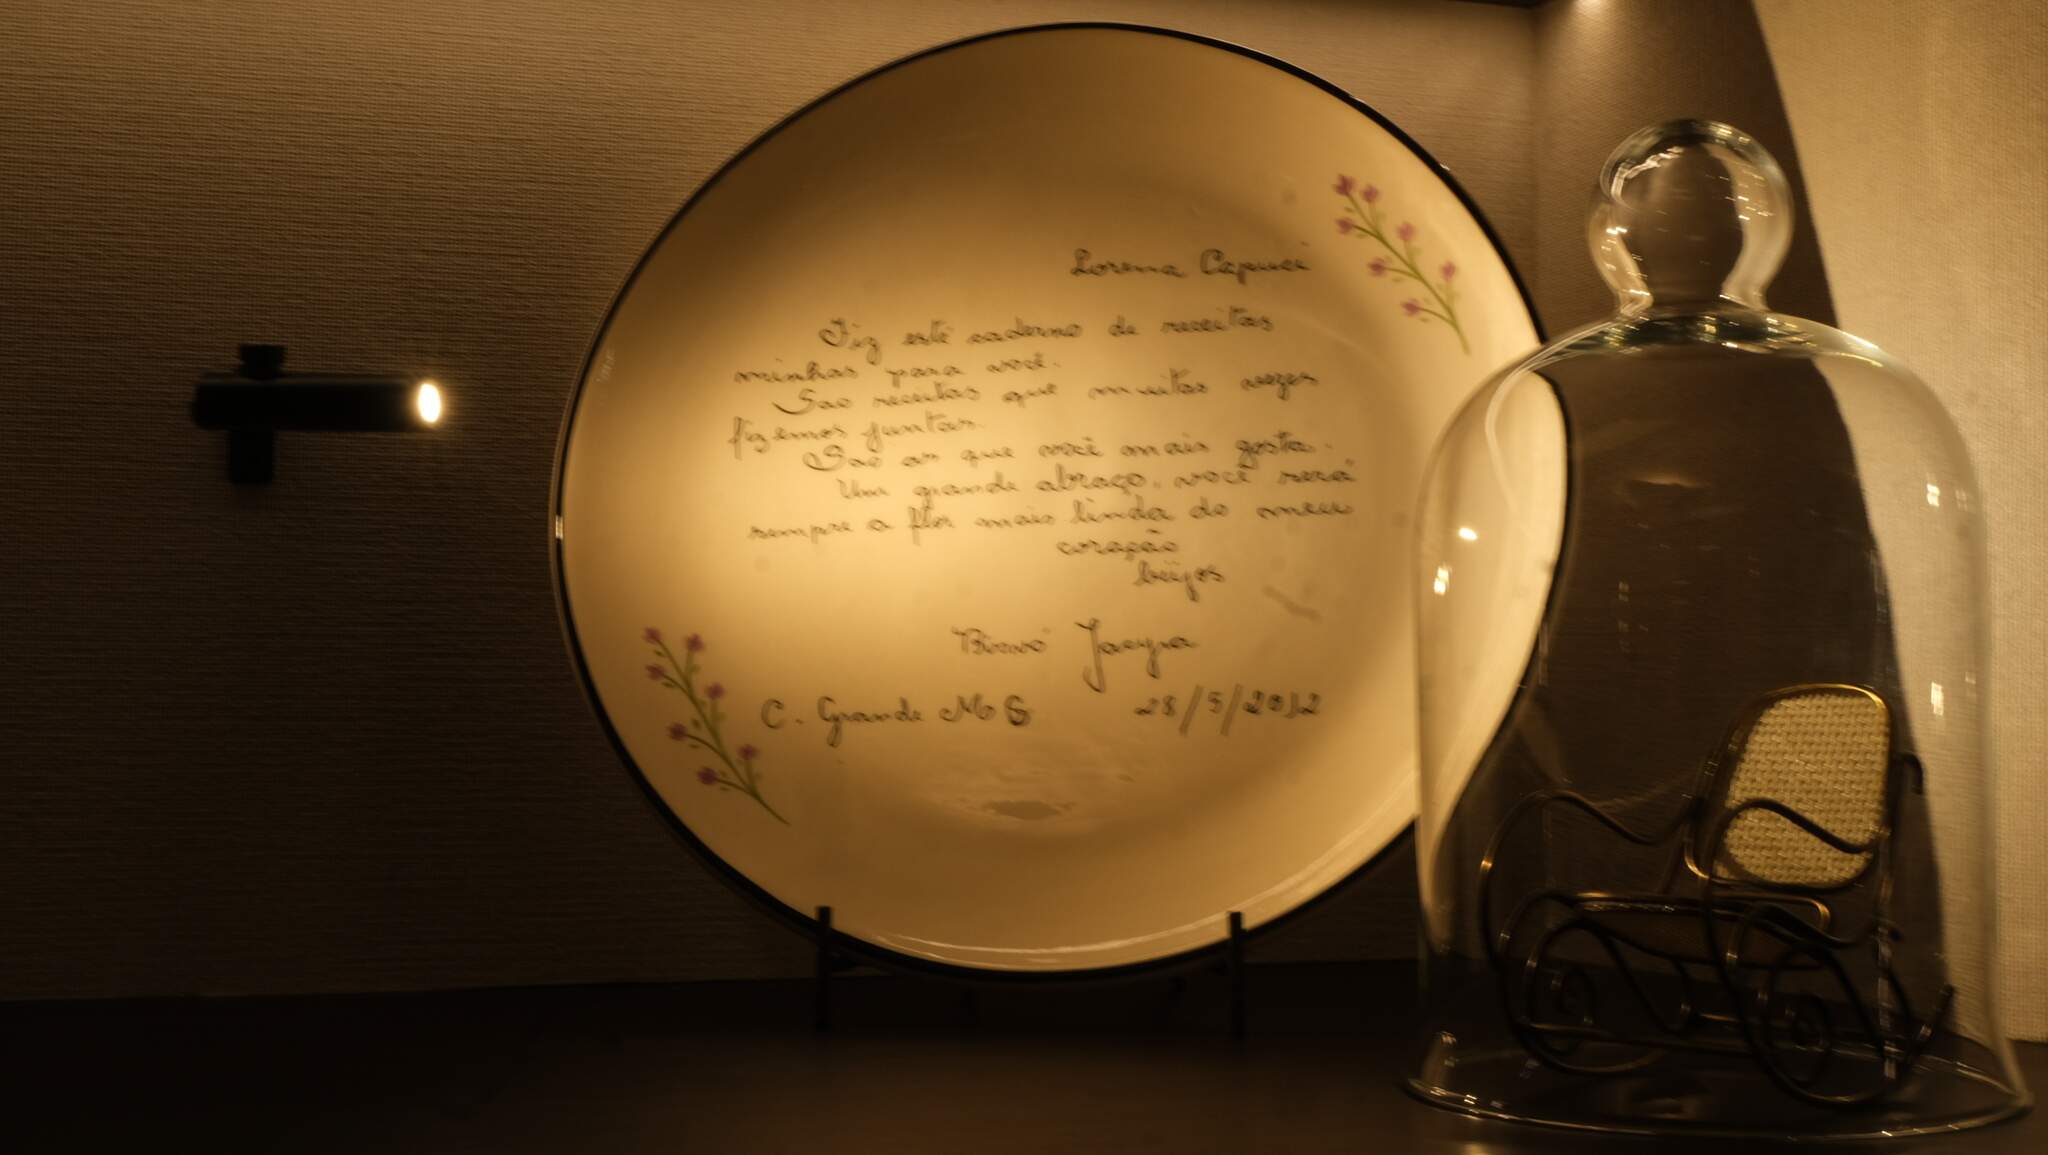 Lorena Capuci
Fiz este caderno de receitas
minhas para você.
Sao receitas que muitas vezes
fizemos juntas.
Sao as que você mais gosta.
Um grande abraço, você será
sempre a flor mais linda do meu
coração
beijos
Jacyra
C. Grande MS 28/5/2012